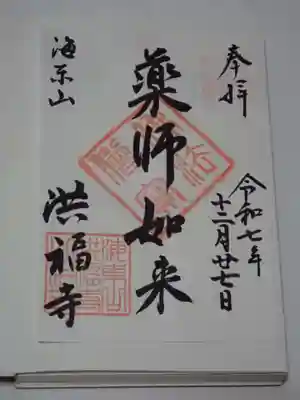 奉拝
令和七年
十二月廿七日
薬師如来
海東山
洪福寺